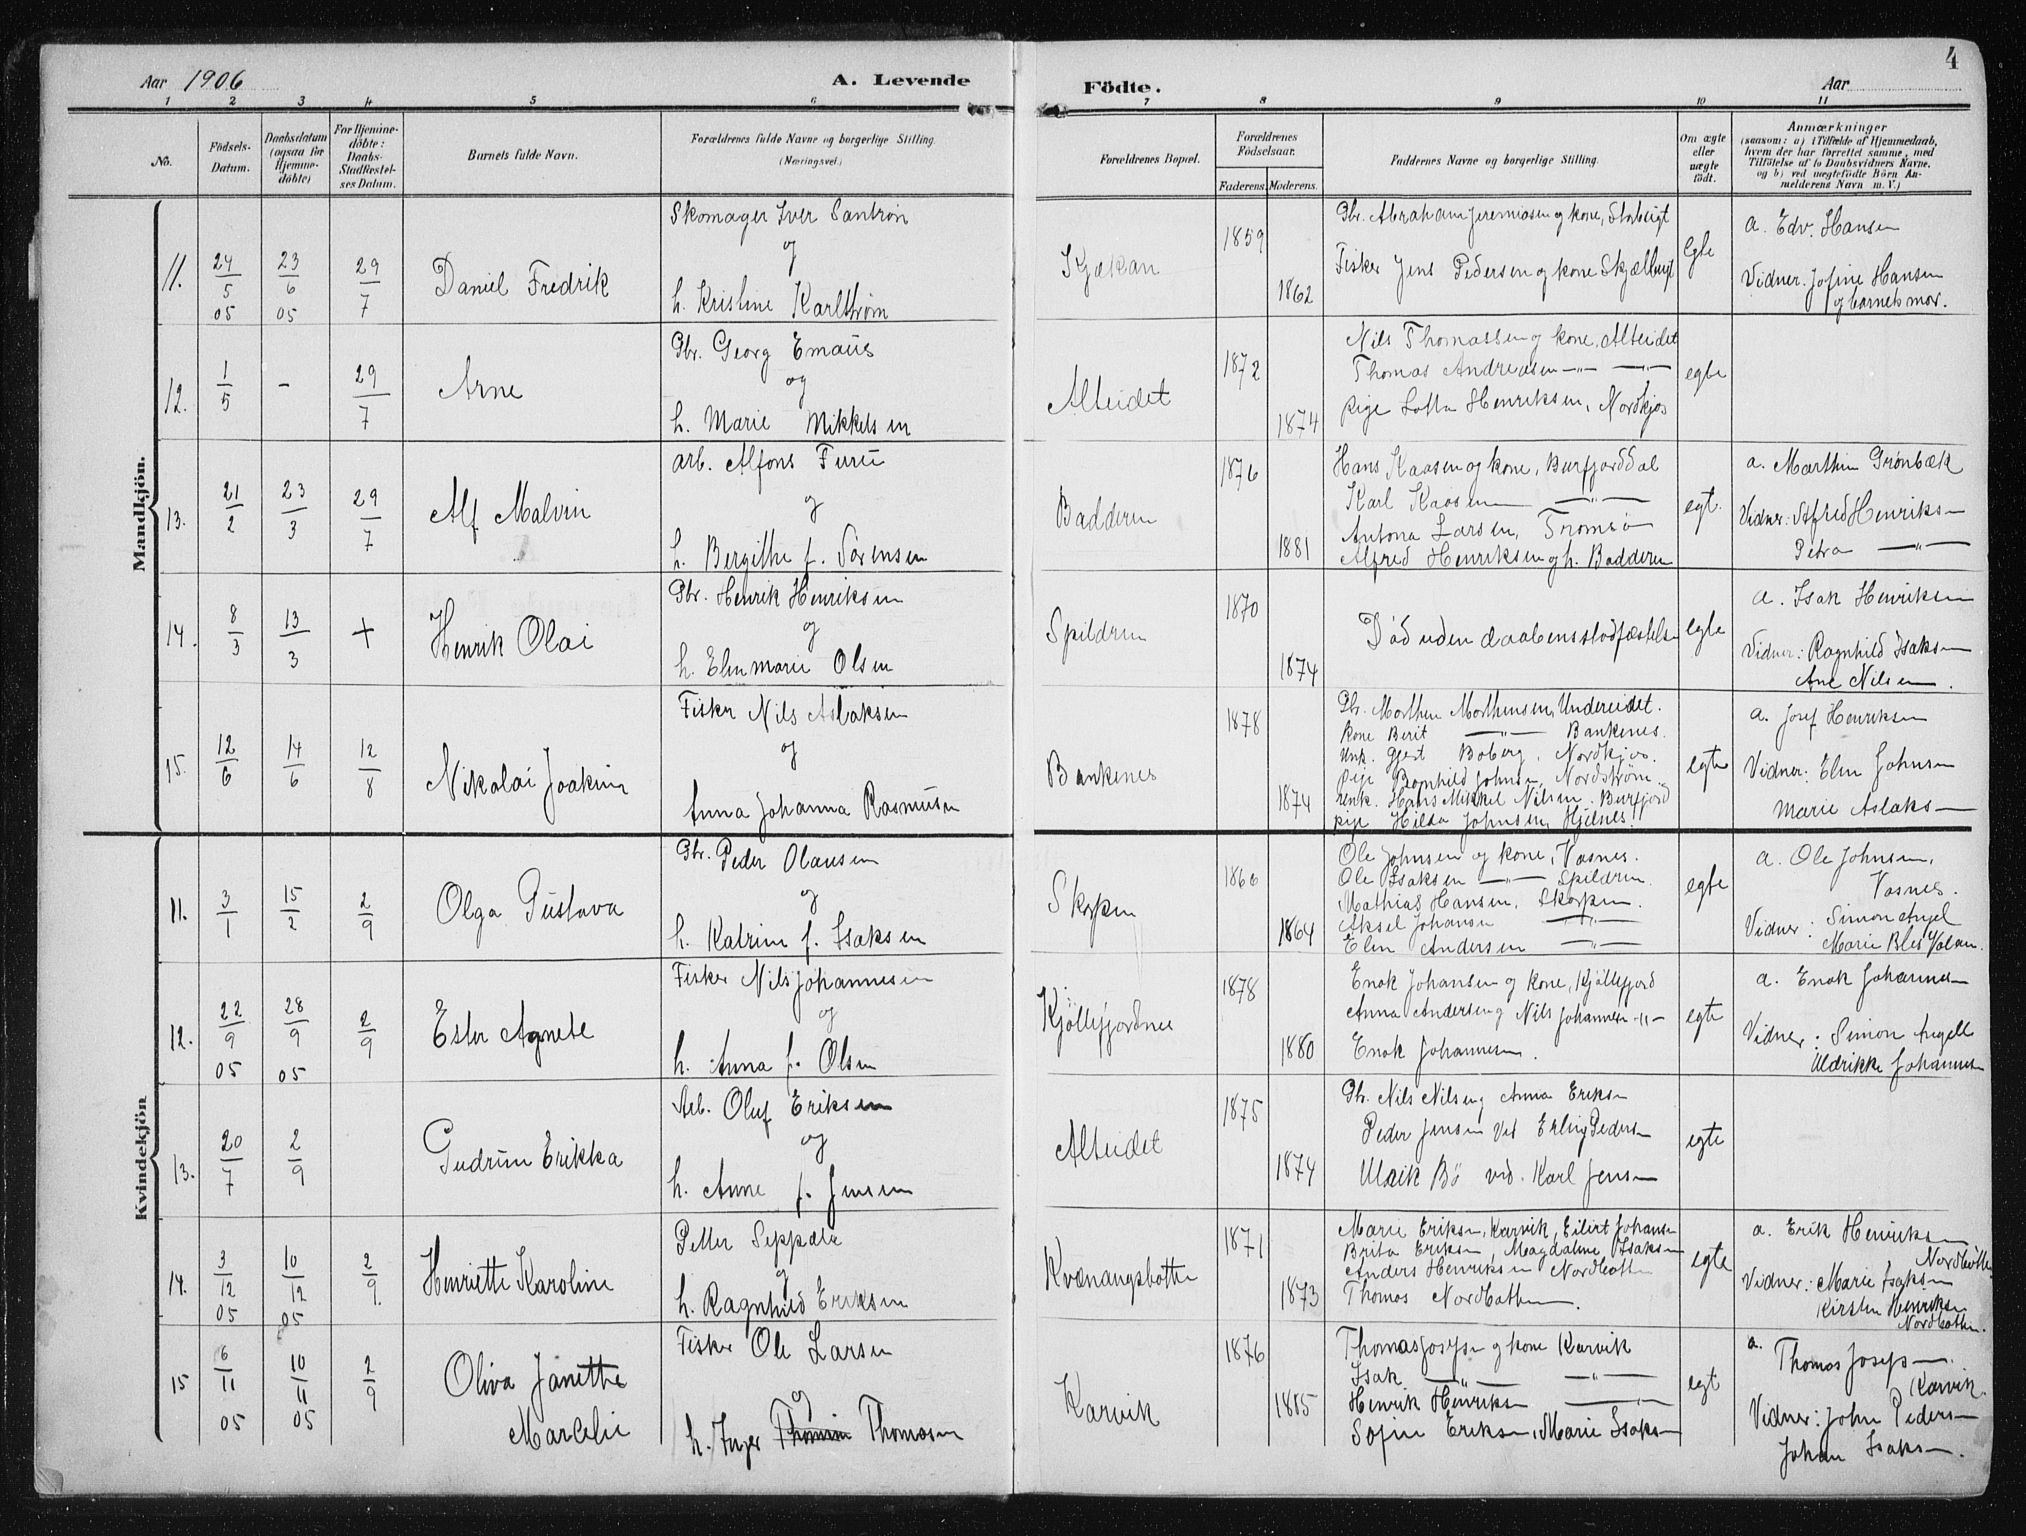 4
Aar 1906
A. Levende
Födte.
Aar
1 2 3 4 5 6 7 8 9 10 11
No.
Födsels-
Datum.
Daabsdatum
(ogsaa for
Hjemme-
döbte)
For Hjemme-
döbte:
Daabs-
Stadfæstel-
ses Datum.
Barnets fulde Navn.
Forældrenes fulde Navne og borgerlige Stilling
(Næringsvei.)
Forældrenes Bopæl.
Forældrenes
Födselsaar.
Faderens. Moderens.
Faddernes Navne og borgerlige Stilling.
Om ægte
eller
uægte
født.
Anmærkninger
(saasom: a) i Tilfælde af Hjemmedaab,
hvem der har forrettet samme, med
Tilføielse af to Daabsvidners Navne,
og b) ved uægtefödte Börn An-
melderens Navn m. V.)
Mandkjön.
11.
24/5 05
23/6 05
29/7
Daniel Fredrik
Skomager Iver Santrön
og
h. Kristine Karlstrøm
Kjækan
1859
1862
Gbr. Abraham Jeremiasen og kone, Storbugt
Fisker Jens Pedersen og kone Skjælbugt
Egte
a. Edv. Hansen
Vidner: Josine Hansen
og barnets mor.
12.
1/5
-
29/7
Arne
Gbr. Georg Emaus
og
h. Marie Mikkelsen
Alteidet
1872
1874
Nils Thomassen og kone, Alteidet
Thomas Andreasen -"- -"-
Pige Lotta Henriksen, Nordkjos
egte
13.
21/2
23/3
29/7
Alf Malvin
arb. Alfons Furu
og
h. Bergithe f. Sørensen
Badderen
1876
1881
Hans Kaasen og kone, Burfjorddal
Karl Kaasen -"-
Antona Larsen, Tromsø
Alfred Henriksen og h. Badderen
egt.
a. Marthin Grønbæk
Vidner: Alfred Henriksen
Petra -"-
14.
8/3
13/3
+
Henrik Olai
Gbr. Henrik Henriksen
og
h. Elenmarie Olsen
Spildren
1870
1874
Død uden daabens stadfæstelse
egte
a. Isak Henriksen
Vidner: Ragnhild Isaksen
Ane Nilsen.
15.
12/6
14/6
12/8
Nikolai Joakim
Fisker Nils Aslaksen
og
Anna Johanna Rasmusen
Bankenes
1878
1874
Gbr. Morthen Morthensen, Undereidet.
Kone Berit -"- Bankenes.
Unk. Gjert Boberg, Nordkjos.
Pige Ragnhild Johnsen, Nordstrøm
Unk. Hans Mikkel Nilsen, Burfjord
Pige Hilda Johnsen, Hjelnes.
egte
a. Josef Henriksen
Vidner: Elen Johnsen
Marie Aslaks-
Kvindekjön
11.
3/1
15/2
2/9
Olga Gustava
Gbr. Peder Olausen
og
h. Katrine f. Isaksen
Skorpen
1866
1864
Ole Johnsen og kone, Vasnes.
Ole Isaksen -"- Spildren.
Mathias Hansen, Skorpen.
Aksel Johansen -"-
Elen Andersen -"-
egte
a. Ole Johnsen,
Vasnes.
Vidner: Simon Angel
Marie
12.
22/9 05
28/9 05
2/9
Ester Agnete
Fisker Nils Johannesen
og
h. Anna f. Olsen
Kjöllefjordnes
1878
1880
Enok Johansen og kone, Kjöllefjord
Anna Andersen og Nils Johannesen -"-
Enok Johannesen.
egte
a. Enok Johannesen
Vidner: Simon Angell
Uldrikke Johannesen
13.
20/7
2/9
Gudrun Erikka
Arb. Oluf Eriksen
og
h. Anne f. Jensen
Alteidet
1875
1874
Gb. Nils Nilsen og Anna Eriksen
Peder Jensen ved Erling Pedersen
Ulrik Bö ved. Karl Jensen
egte
14.
3/12 05
10/12 05
2/9
Henriette Karoline
Petter Seppälä
og
h. Ragnhild Eriksen
Kvænangsbotten
1871
1873
Marie Eriksen, Karvik, Eilert Johansen
Brita Eriksen, Magdalene Isaksen
Anders Henriksen Nordbotten
Thomas Nordbotten.
egte
a. Erik Henriksen
Nordbotten
Vidner: Marie Isaksen
Kirsten Henriksen
Nordbotten.
15
6/11 05
10/11 05
2/9
Oliva Janette
Marcelie
Fisker Ole Larsen
og
h. Inger Thomasen
Karvik
1876
1885
Thomas Josefsen og kone Karvik
Isak -"- -"-
Henrik Henriksen -"-
Sofie Eriksen, Marie Isaksen
egt
a. Thomas Josefsen
Karvik.
Vidner: John Pedersen
Johan Isaksen.